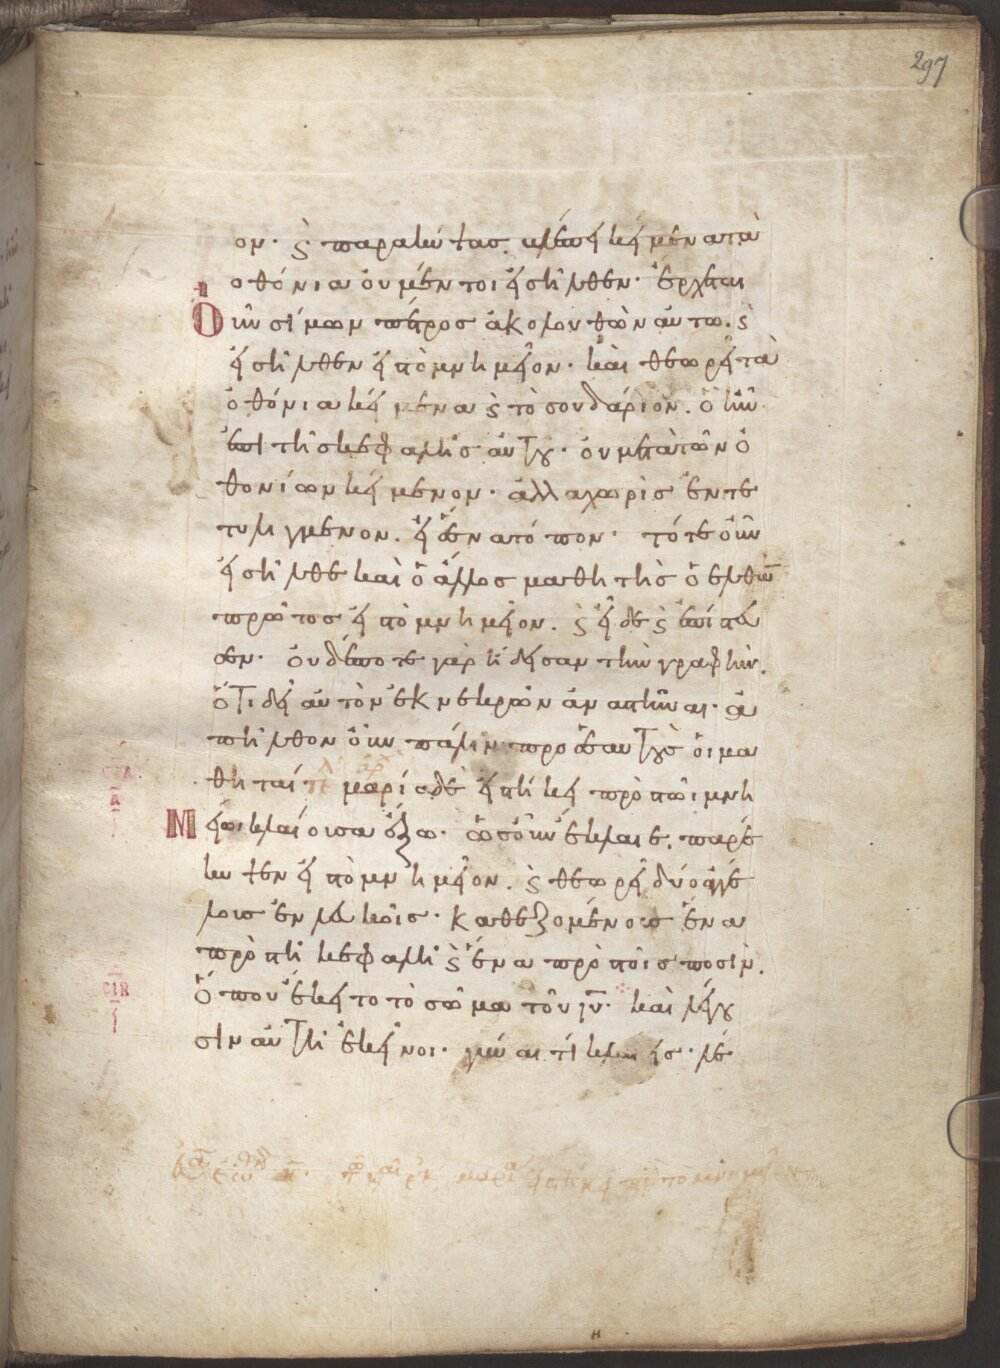 297
ον· ϗ παρακύψασ. βλέπει κείμενα τὰ
ὀθόνια οὐ μέντοι εἰσῆλθεν· ἔρχεται
οὖν σίμων πέτροσ ἀκολουθῶν αὐτω. ϗ
εἰσῆλθεν εἰ τὸ μνημεῖον· καὶ θεωρεῖ τὰ
ὀθόνια κείμενα ϗ τὸ σουδάριον. ὃ ἦν
ἐπὶ τῆσ κεφαλῆσ αὐτοῦ· οὐ μετὰ τῶν ὀ
θονίων κείμενον· ἀλλα χωρὶσ ἐντε
τυλιγμενον. εἰσ ἕνα τόπον· τότε οὖν
εἰσῆλθε καὶ ὁ ἄλλοσ μαθητὴσ ὁ ελθὼν
πρῶτοσ εἰ τὸ μνημεῖον. ϗ εἶδε ϗ ἐπίστευ
σεν· οὐδέποτε γὰρ ἤδεισαν τὴν γραφὴν.
ὅτι δεῖ αὐτὸν ἐκ νεκρῶν ἀναστῆναι· ἀ
πῆλθον οὖν πάλιν προσ ἑαυτοὺσ οἱ μα
θηταί μαρία δὲ εἱστήκει πρὸ τῶι μνη
μείωι κλαίουσα ἔξω· ὡσ οὖν ἔκλαιε. παρέ
κυψεν εἰ τὸ μνημεῖον. ϗ θεωρεῖ δύο ἀγγέ
λουσ ἐν λευκοῖσ· καθεζομένουσ ἕνα
πρὸ τῆ κεφαλῆ ϗ ἕνα πρὸ τοῖσ ποσὶν.
ὅπου ἔκειτο τὸ σῶμα τοῦ ιυ· καὶ λέγου
σιν αὐτῆ ἐκεῖνοι· γύναι τί κλαίεισ· λέ